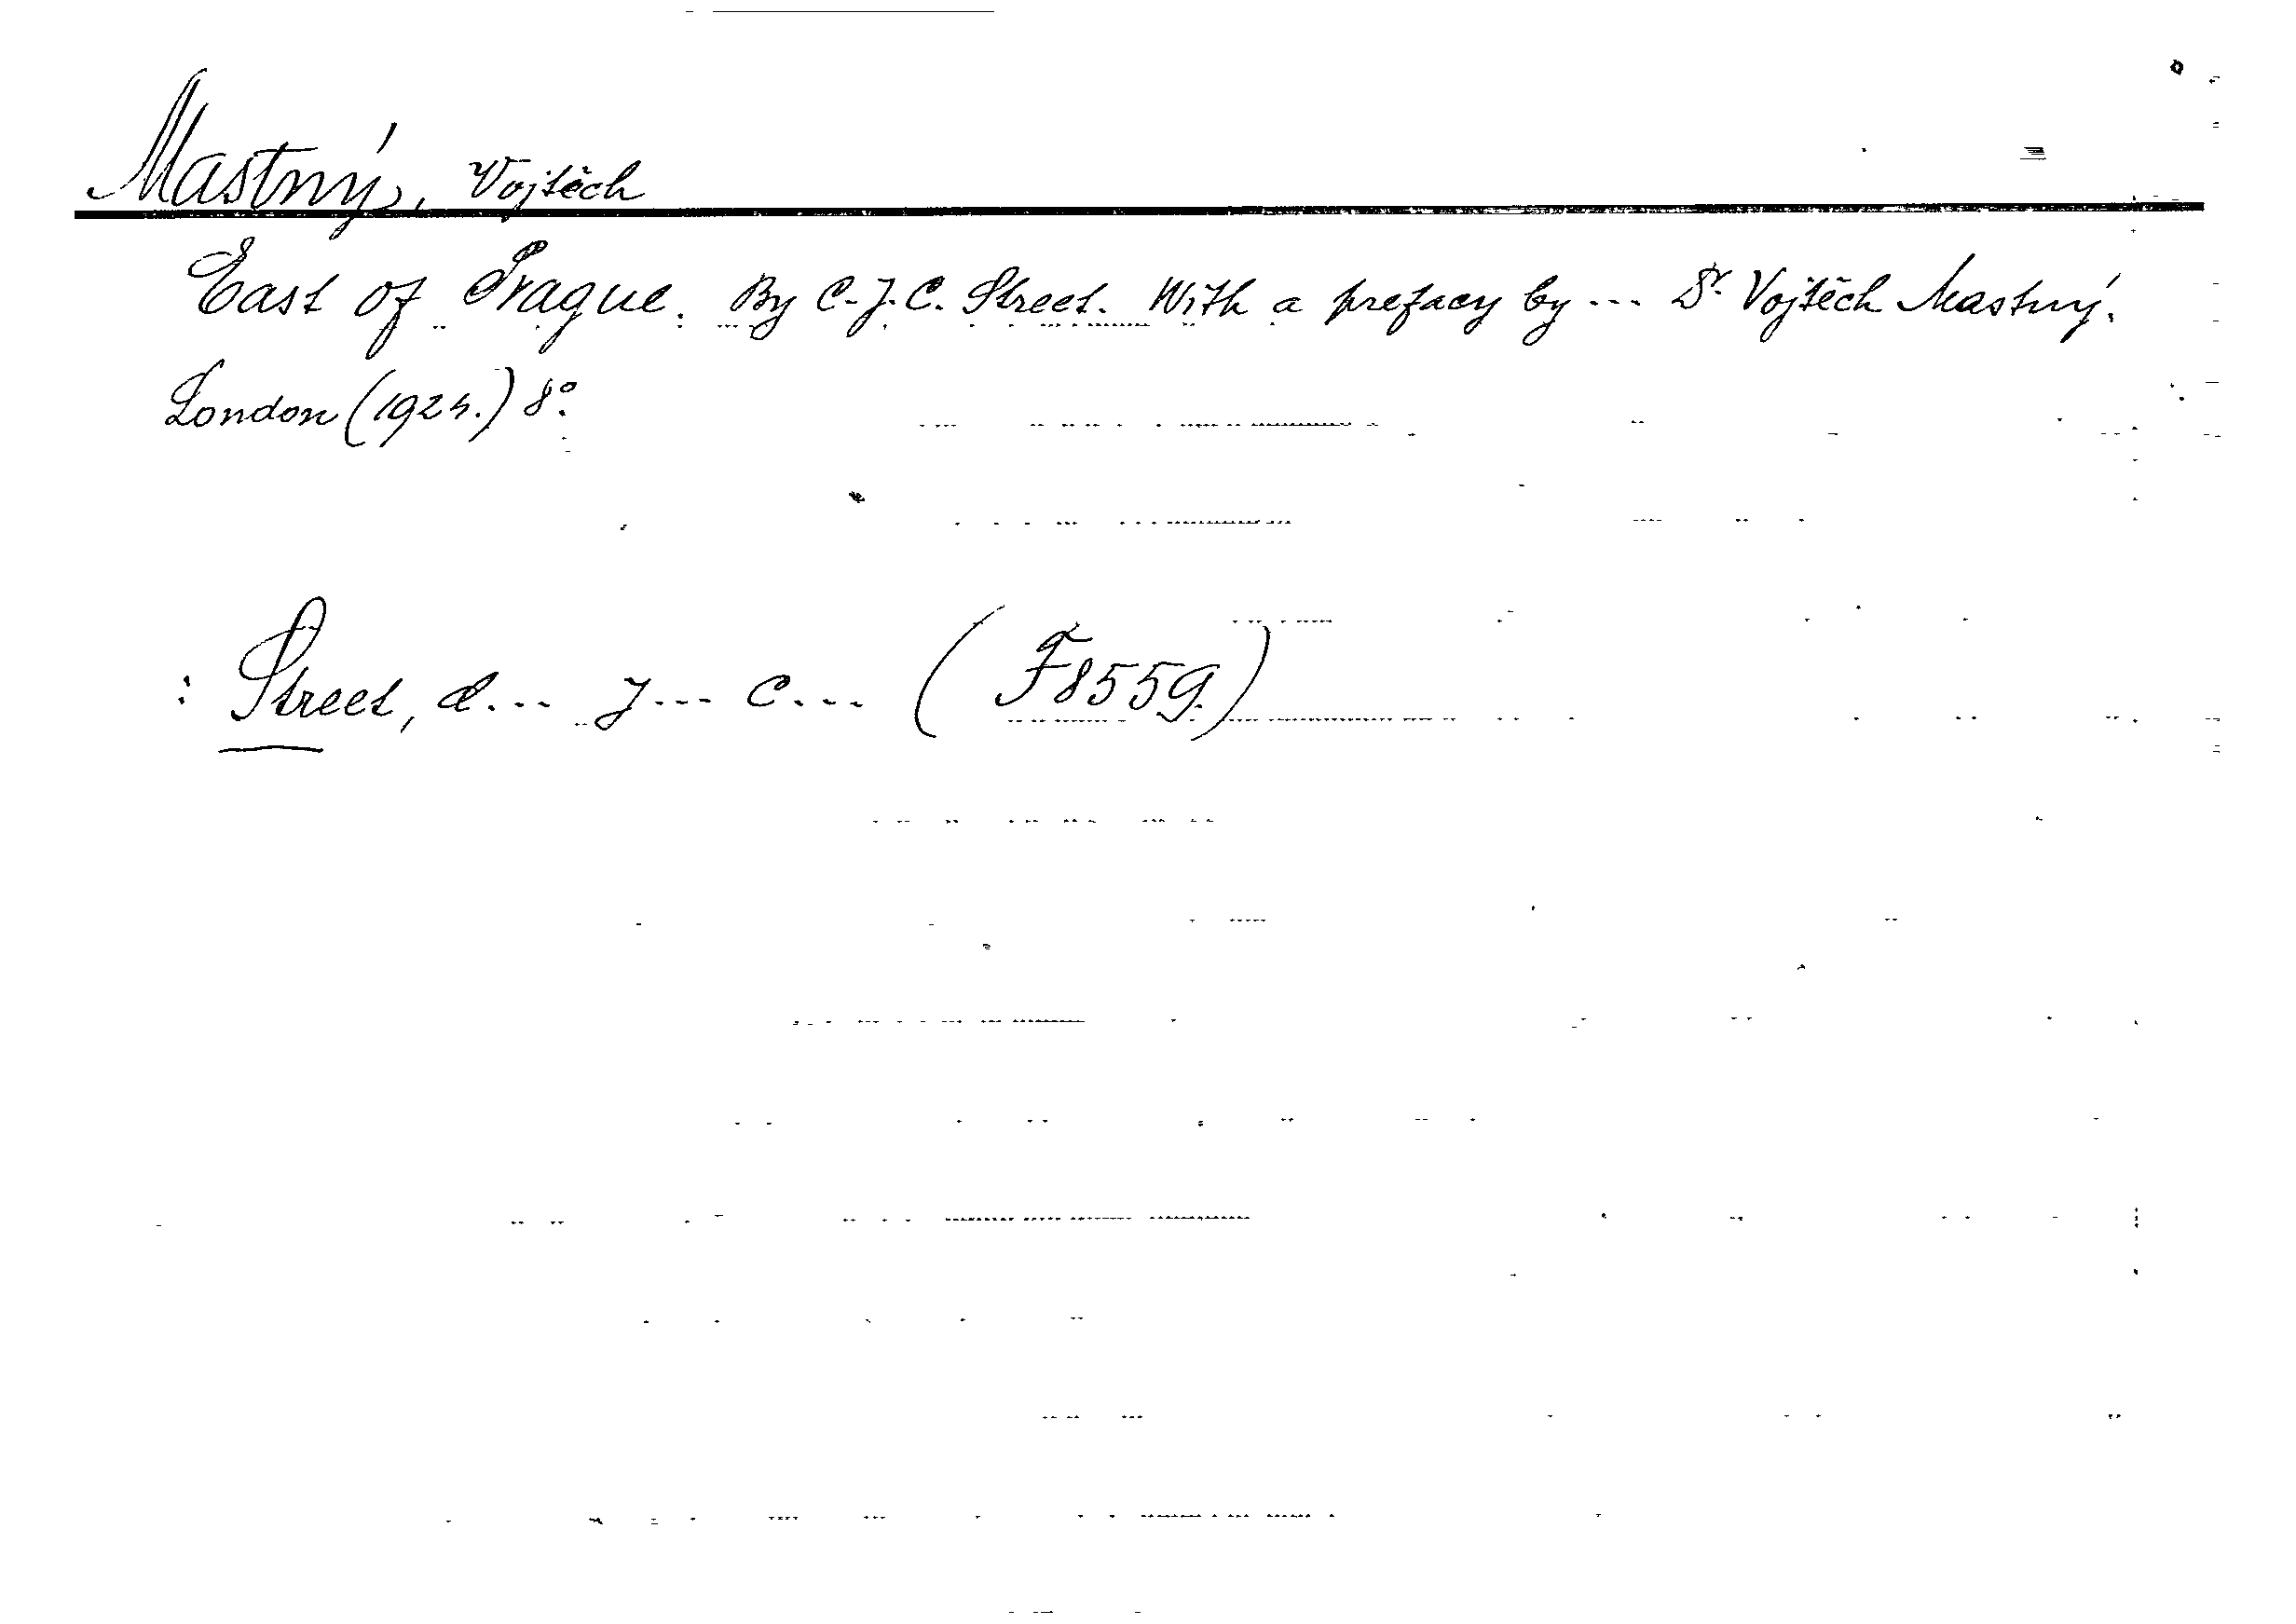 Mastný, Vojtěch
East of Prague. By C. J. C. Street. With a prefacy by ... Dr. Vojtěch Mastný.
London (1924.) 8°.
: Street, C... J... C... (F8559.)